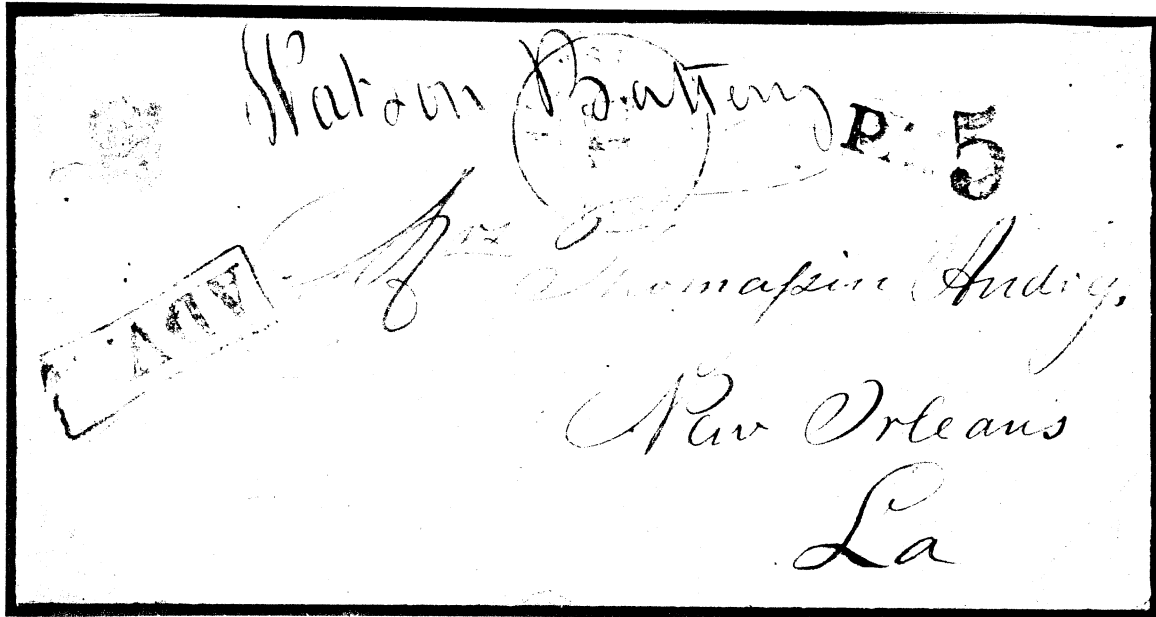 Watson Battery
P. 5
ADV
Mrs Thomasin Andry,
New Orleans
La